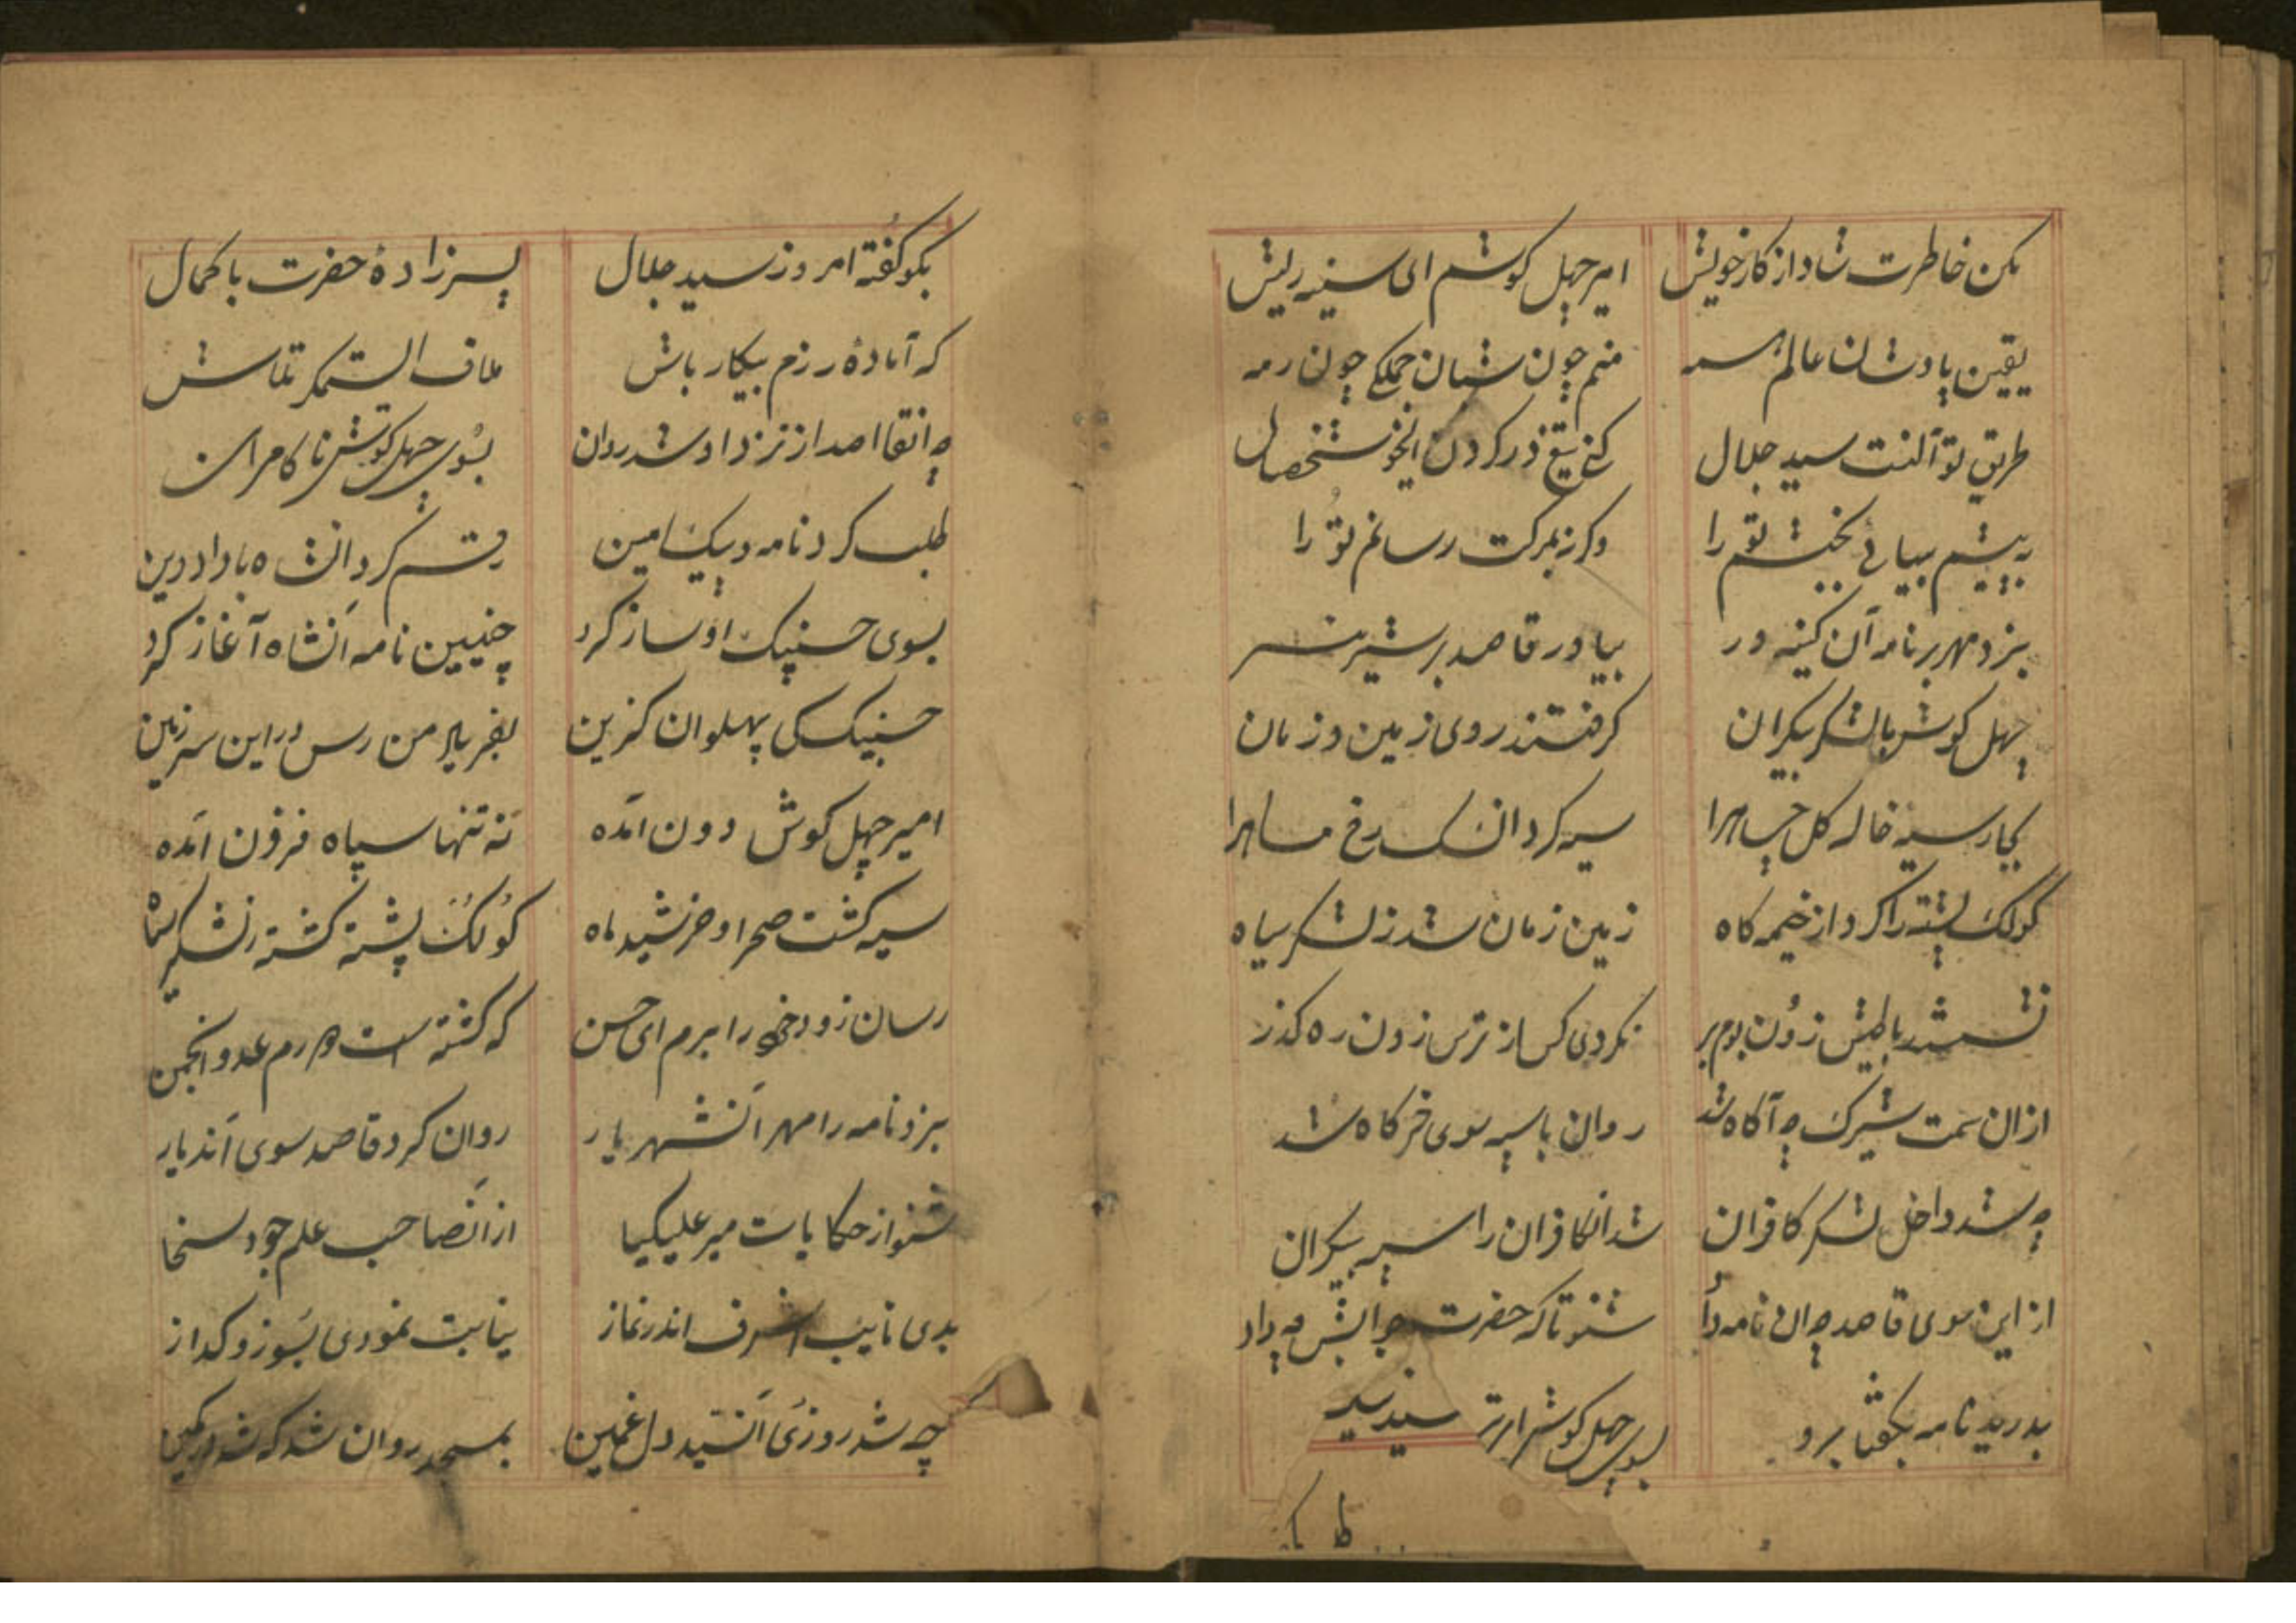 مکن خاطرت شاد از کار خویش امیر چهل کوشم ای سینه ریش
یقین پادشان عالم همه منم چون شبان جملگی چون رمه
طریق تو آنست سید جلال کنی تیغ در کردن
به پیشم بیایی بخشم تو را وکرنه بمرکت رسانم تو را
بزد مهر بر نامه آن کینه ور بیاور قاصد بر شیر نر
چهل کوش با لشکر بیکران کرفتند روی زمین و زمان
سیه کرد رخ ماهرا
کولک پشته را کرد از خیمه کاه زمین زمان شد ز لشکر سیاه
نکردی کس از ترس زون ره کذر
ازان سمت شیرک چه آکاه شد روان با سپه سوی خرکاه شد
چه شد داخل لشکر کافران شد انکافران را سپه بیکران
از این سوی قاصد چه آن نامه داد شنو تا که حضرت جوابش چه داد
بدرید نامه بگفتا برو بسوی چهل کوش
بکو گفته امروز سید جلال پسرزادهٔ حضرت با کمال
که آمادهٔ رزم پیکار باش ملاف ای ستمکر تلاش
چه انقاصد از نزد او شد روان بسوی چهل کوش ناکامران
طلب کرد نامه و پیک امین رقم کرد انشاه با داد دین
بسوی حسنپیک او ساز کرد چنیین نامه آنشاه آغاز کرد
حسنپیک کی پهلوان کزین بفریاد من رس در این سرزمین
امیر چهل کوش دون آمده نه تنها سپاه فزون آمده
سیه کشت صحرا و خرشید ماه کولک پشته کشته ز لشکر سیاه
رسان زود خود را برم ای حسن که کشته است در رم عدو انجمن
بزد نامه را مهر آنشهریار روان کرد قاصد سوی آندیار
شنو از حکایات میر علیکیا از آنصاحب علم جود سخا
بدی نایب اشرف اندر نماز نیابت نمودی بسوز و کداز
چه شد روزی آنسید دل غمین بمسجد روان شد که شد در کمین